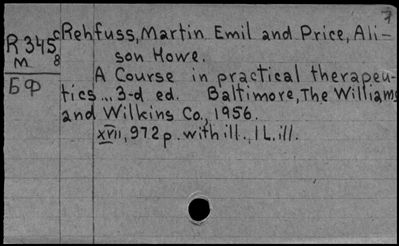 7
R345 c Rehfuss, Martin Emil and Price, Ali-
м 8 son Howe.
A Course in practical therapeu-
БФ tics... 3-d ed. Baltimore, The Williams
and Wilkins Co., 1956.
xvii, 972 p. with ill., 1 L. ill.